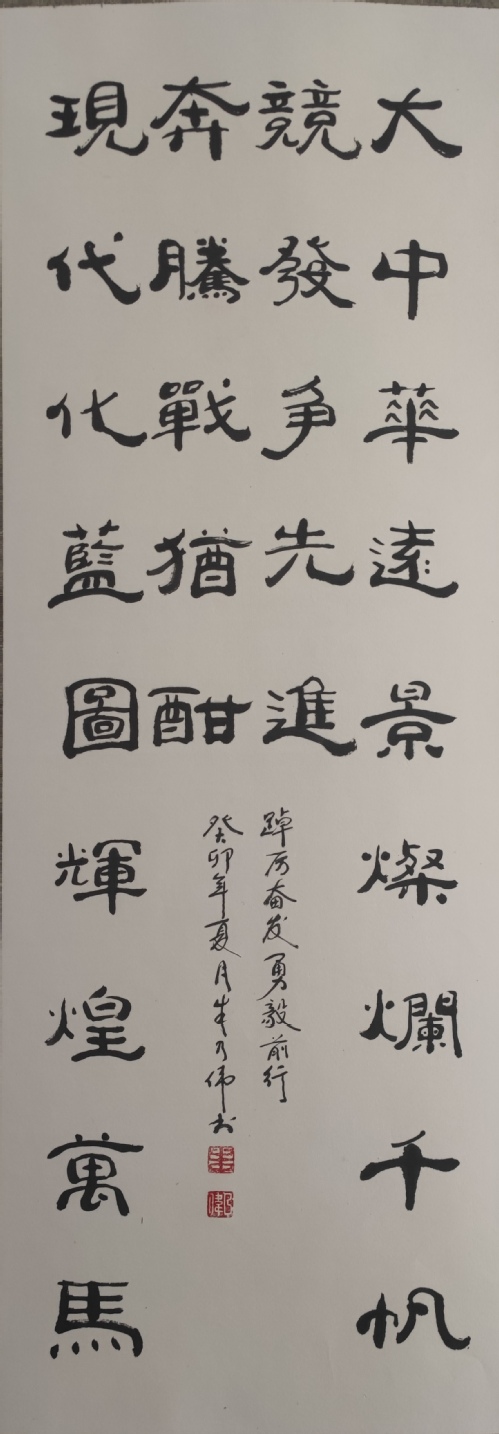 大中華遠景燦爛千帆
競發争先進
現代化藍圖輝煌萬馬
奔騰戰猶酣
踔厉奋发勇毅前行
癸卯年夏月朱乃伟书